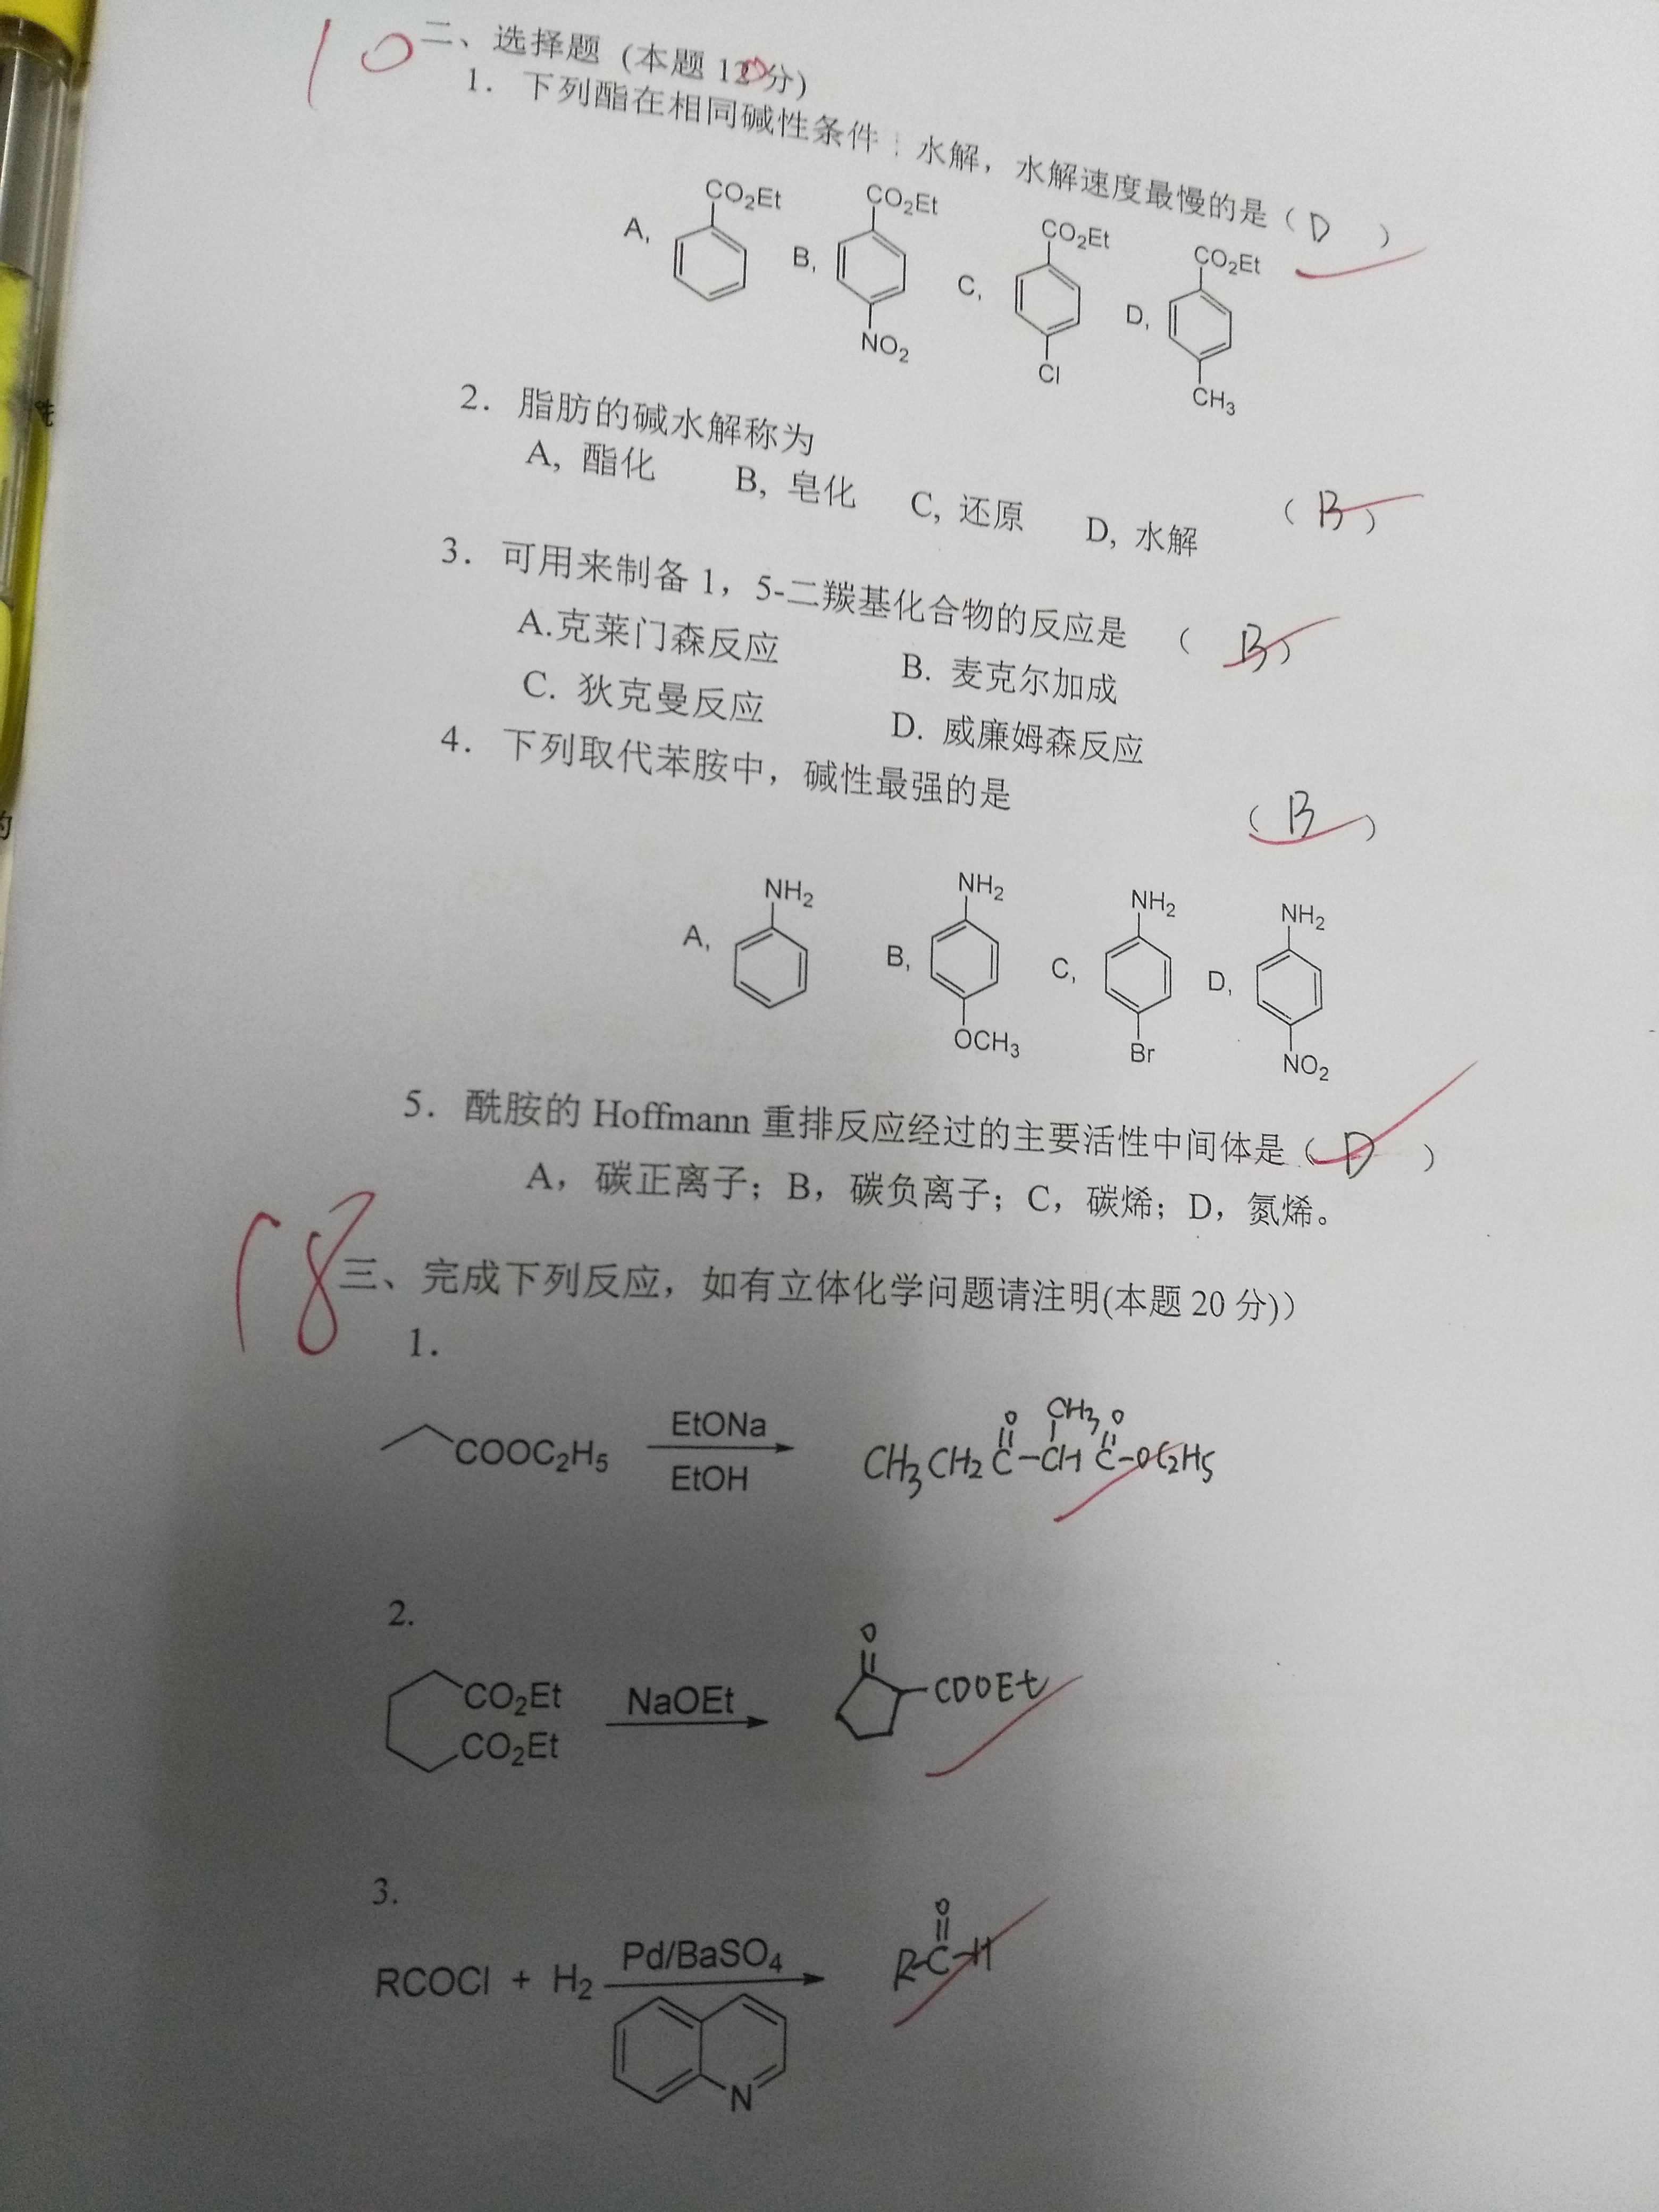 10
二、选择题 (本题10分)
1. 下列酯在相同碱性条件 水解，水解速度最慢的是（ D ）
A, CO2Et B, CO2Et NO2 C, CO2Et Cl D, CO2Et CH3
2. 脂肪的碱水解称为 （ B ）
A, 酯化 B, 皂化 C, 还原 D, 水解
3. 可用来制备 1，5-二羰基化合物的反应是 （ B ）
A.克莱门森反应 B. 麦克尔加成
C. 狄克曼反应 D. 威廉姆森反应
4. 下列取代苯胺中，碱性最强的是 （ B ）
A, NH2 B, NH2 OCH3 C, NH2 Br D, NH2 NO2
5. 酰胺的 Hoffmann 重排反应经过的主要活性中间体是（ D ）
A，碳正离子；B，碳负离子；C，碳烯；D，氮烯。
18
三、完成下列反应，如有立体化学问题请注明(本题 20 分)）
1.
COOC2H5 EtONa EtOH CH3CH2C(=O)-CH(CH3)C(=O)-OC2H5
2.
CO2Et CO2Et NaOEt O COOEt
3.
RCOCl + H2 Pd/BaSO4 N R-C(=O)-H